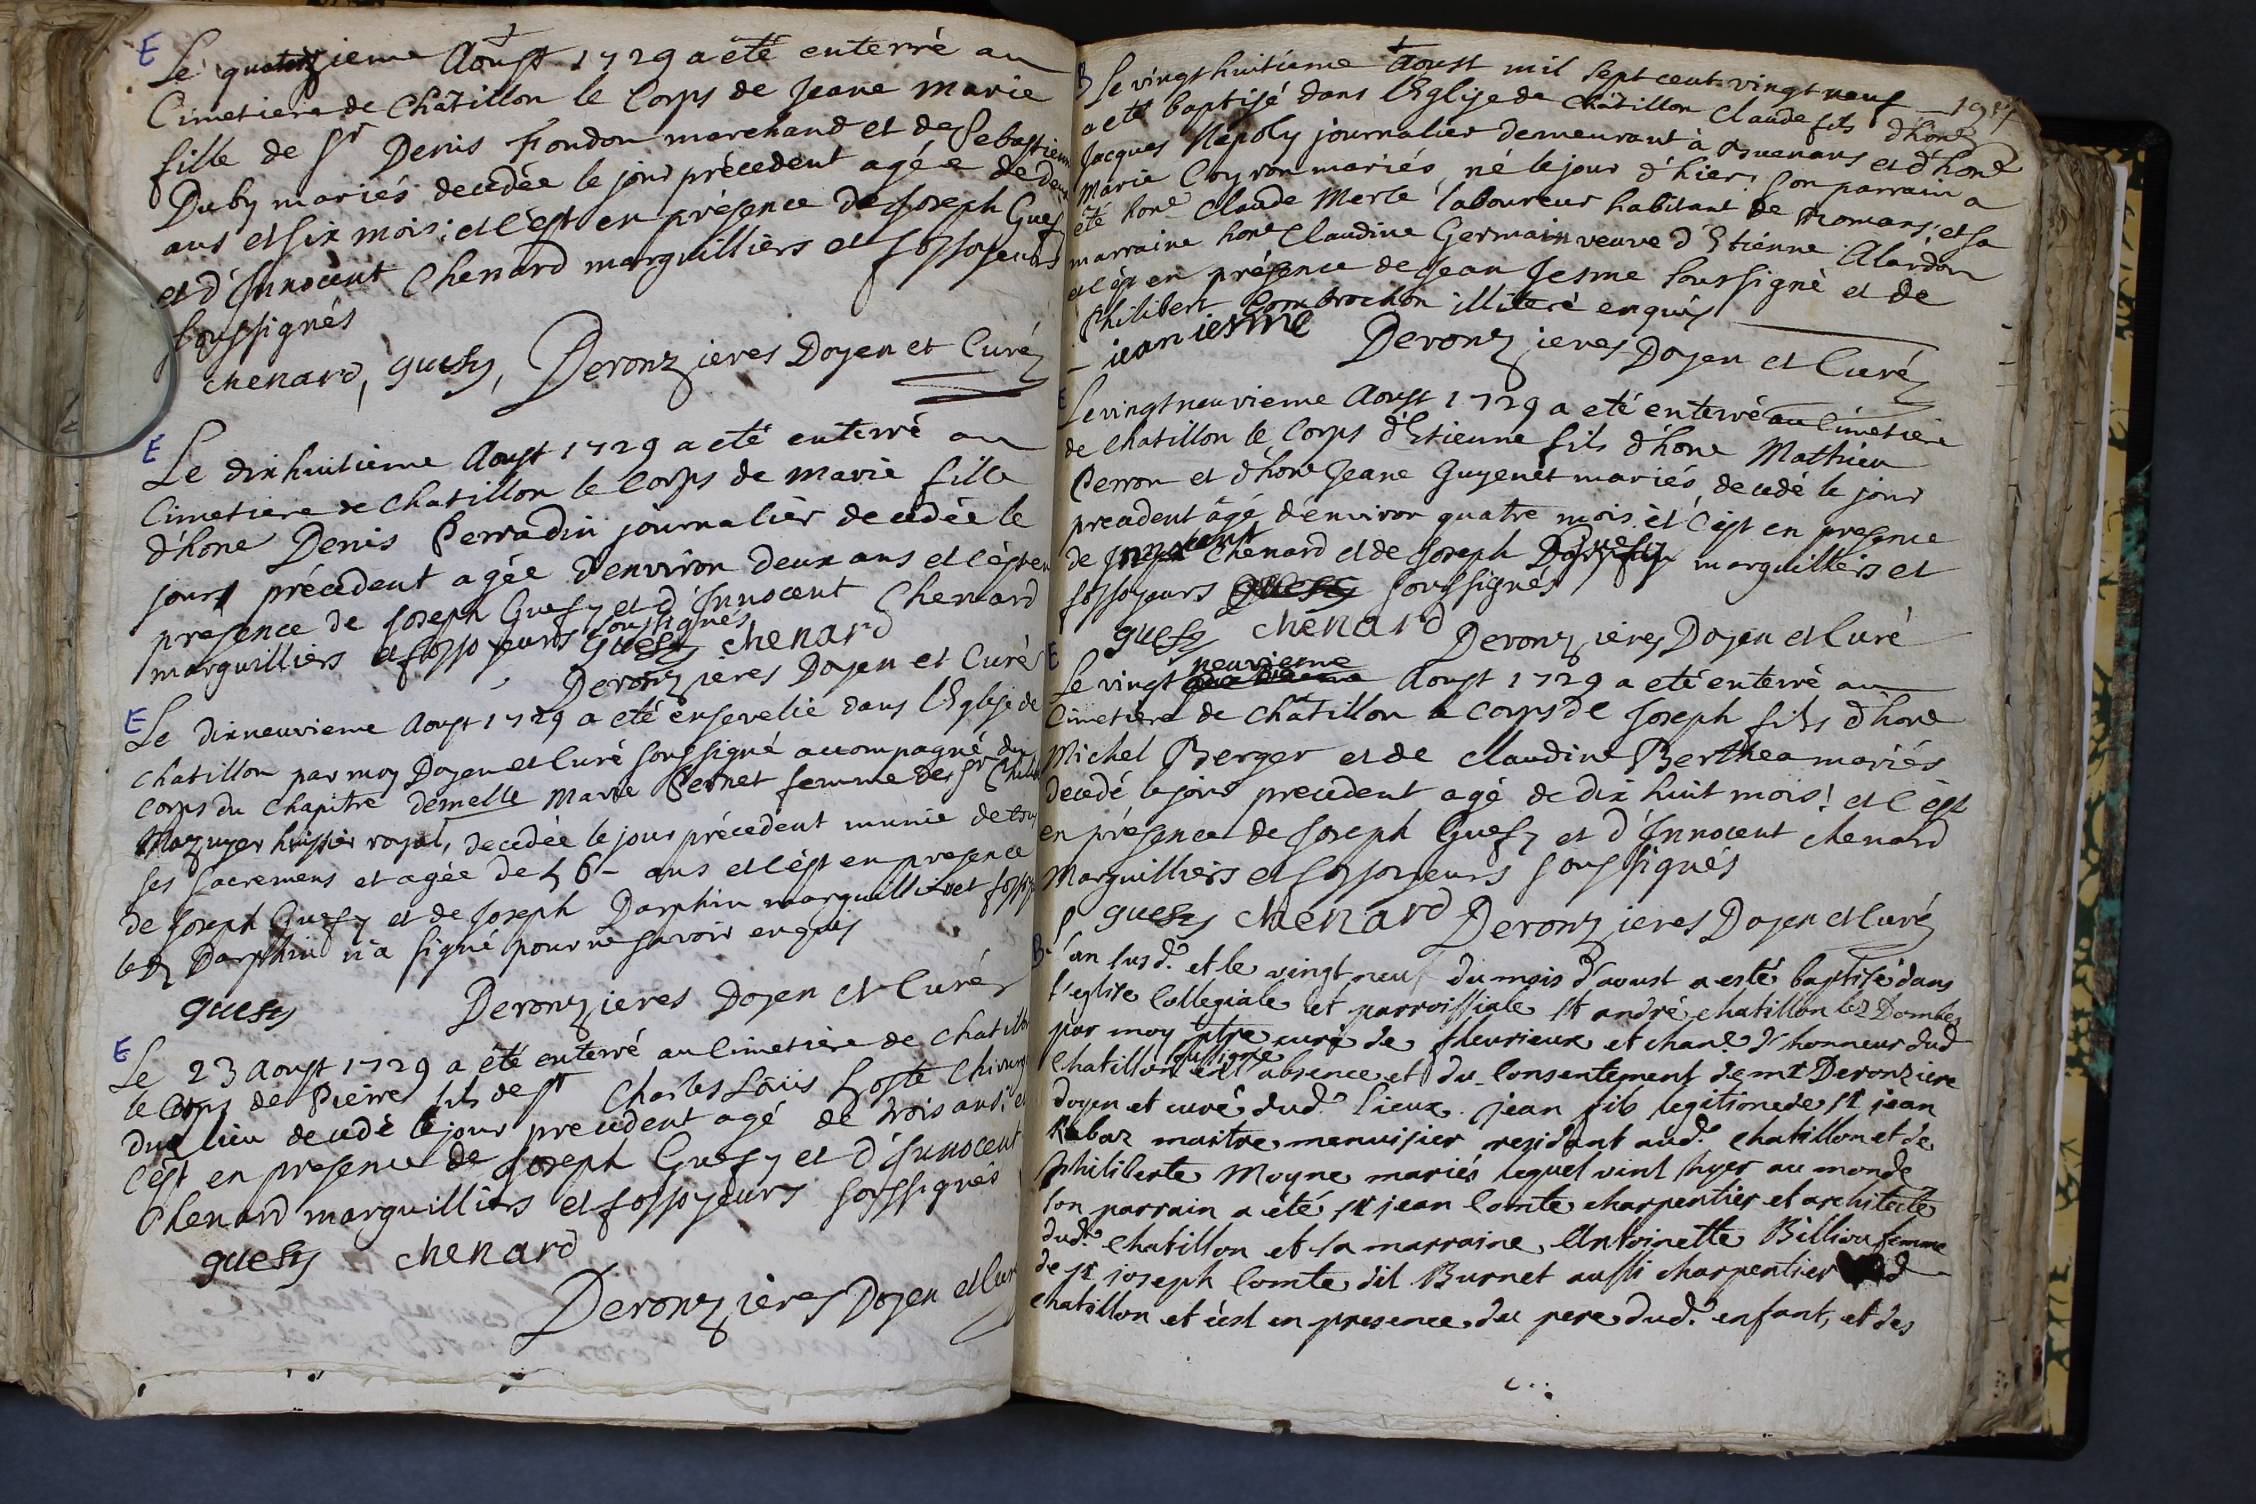 E
Le quatorzieme Aoust 1729 a été enterré au
Cimetiere de Châtillon le Corps de Jeane Marie
fille de Sr Denis Fondon marchand et de Sebastienne
Duby mariés decedée le jour précedent agée de deux
ans et six mois; et c'est en présence de Joseph Guesy
et d'Innocent Chenard marguilliers et fossoyeurs
soussignés
chenard, guesy, Deronzieres Doyen et Curé
E
Le dixhuitieme Aoust 1729 a eté enterré au
Cimetiere de Chatillon le Corps de Marie fille
d'hone Denis Perradin journalier decedée le
jour précedent agée d'environ deux ans et c'est en
présence de Joseph Guesy et d'Innocent Chenard
marguilliers et fossoyeurs soussignés
guesy chenard
Deronzieres Doyen et Curé
E
Le dixneuvieme Aoust 1729 a eté ensevelie dans l'Eglise de
Chatillon par moy Doyen et Curé soussigné accompagné du
corps du Chapitre demelle Marie Pernet femme de Sr
Mazuyer huissier royal, decedée le jour précedent munie de tous
ses sacremens et agée de 56 - ans et c'est en presence
de Joseph Guesy et de Joseph Darphin marguilliers et
led Darphin n'a signé pour ne savoir enquis
guesy Deronzieres Doyen et Curé
E
Le 23 Aoust 1729 a été enterré au Cimetiere de Chatillon
le Corps de Pierre fils de Sr Charles Loüis Hoste Chirurg
dud lieu decedé le jour precedent agé de trois ans; et
c'est en presence de Joseph Guesy et d'Innocent
Chenard marguilliers et fossoyeurs soussignés
guesy chenard
Deronzieres Doyen et Cur
B
Le vingt huitieme Aoust mil sept cent vingt neuf
a eté baptisé dans l'Eglise de Châtillon Claude fils d'hone
Jacques Nepoly journalier demeurant à et d'hone
Marie Coyron mariés, né le jour d'hier. Son parrain a
été hone Claude Merle laboureur habitant de Romans; et sa
marraine hone Claudine Germain veuve d'Etienne Alardon
et c'est en présence de Jean Jesme soussigné et de
Philibert illiteré enquis
jean iesme Deronzieres Doyen et Curé
E
Le vingt neuvieme Aoust 1729 a eté enterré au Cimetiere
de chatillon le Corps d'Etienne fils d'hone Mathieu
Perron et d'hone Jeane Guyenet mariés, decedé le jour
precedent âgé d'environ quatre mois et c'est en presence
de Innocent Chenard et de Joseph Guesy marguilliers et
fossoyeurs soussignés
guesy chenard Deronzieres Doyen et Curé
E
Le vingt neuvieme Aoust 1729 a eté enterré au
Cimetiere de Châtillon le Corps de Joseph fils d'hone
Michel Berger et de Claudine Berthea mariés
decedé le jour precedent agé de dix huit mois! et c'est
en présence de Joseph Guesy et d'Innocent Chenard
Marguilliers et fossoyeurs soussignés
guesy chenard Deronzieres Doyen et Curé
B
L'an susd. et le vingt neuf du mois d'aoust a esté baptisé dans
l'eglise Collegiale et parroissiale st andré chatillon lez Dombes
par moy ptre curé de fleurieux et chane d'honneur dud
soussigné
Chatillon en l'absence et du consentement de mr Deronziere
doyen et curé dud. lieux. jean fils legitime de sr jean
Rabaz maitre menuisier residant aud. chatillon et de
philiberte Moyne mariés lequel vint hyer au monde
son parrain a été sr jean Comte charpentier et architecte
dud. Chatillon et sa marraine Antoinette Billiou femme
de sr joseph Comte dit Burnet aussi charpentier
chatillon et c'est en presence du pere dud. enfant, et des